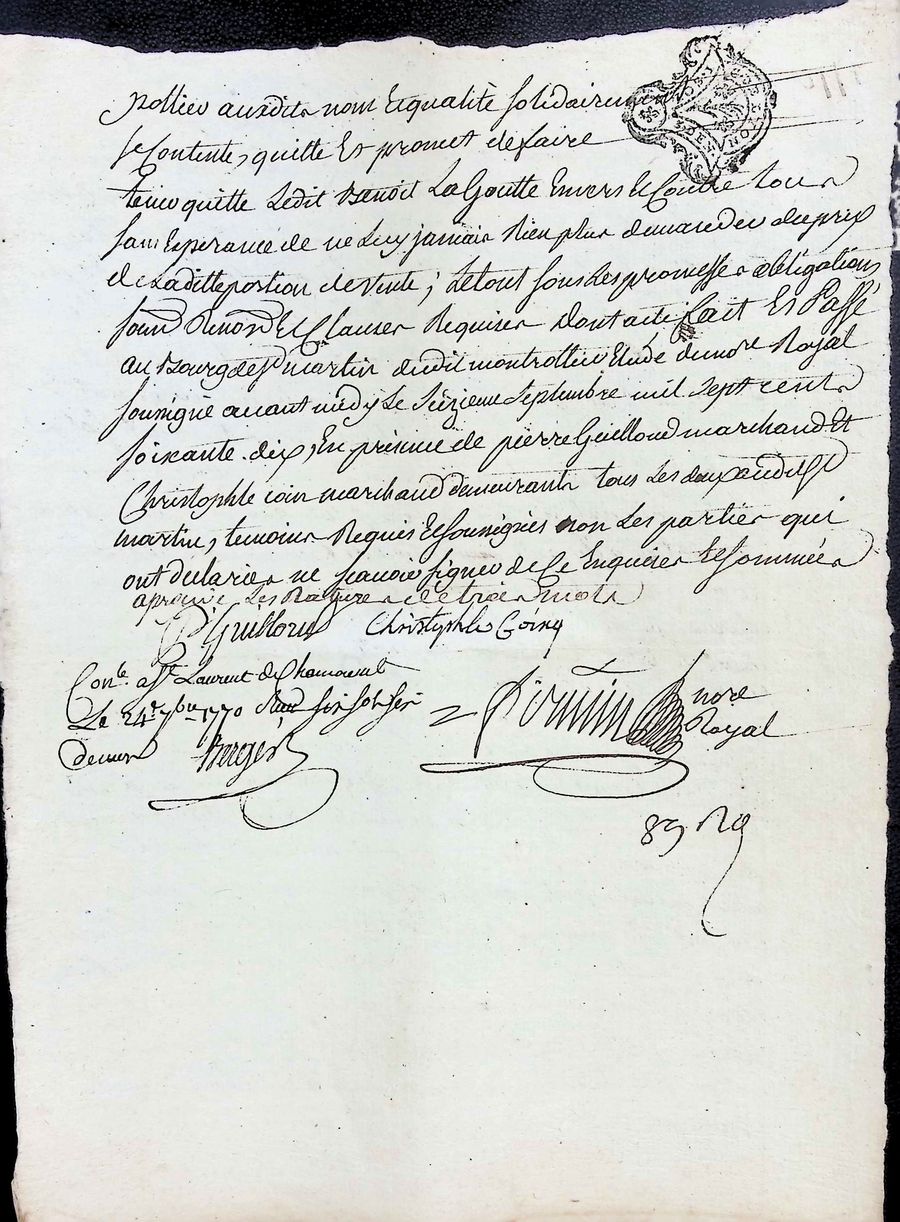 pollieu auxdits nom Et qualité solidairement
se Contente, quitte Et promet de faire
tenir quitte Ledit Benoit La Goutte Envers Et Contre tous
sans Esperance de ne Luy jamais Rien plus demander du prix
de Laditte portion de vente; Le tout sous Les promesses obligations
soum Renon Et Clauses Requises Dont acte fait Et Passé
au Bourg de St martin dudit montrottier Etude du nore Royal
soussigné avant midy Le Seizieme Septembre mil Sept cents
soixante-dix, En presence de pierre Guilloud marchand Et
Christophle coin marchand demeurants tous Les deux audit St
martin, temoins Requis Et soussignés non Les parties qui
ont declarées ne scavoir signer de Ce Enquises Et sommées
aprouvé Les Ratures de trois mots
P Guilloud Christophle Coing
Con.le a St Laurent de Chamousset
Le 24e 7bre 1770 Reçu six sols six
deniers Berger
nore
Royal